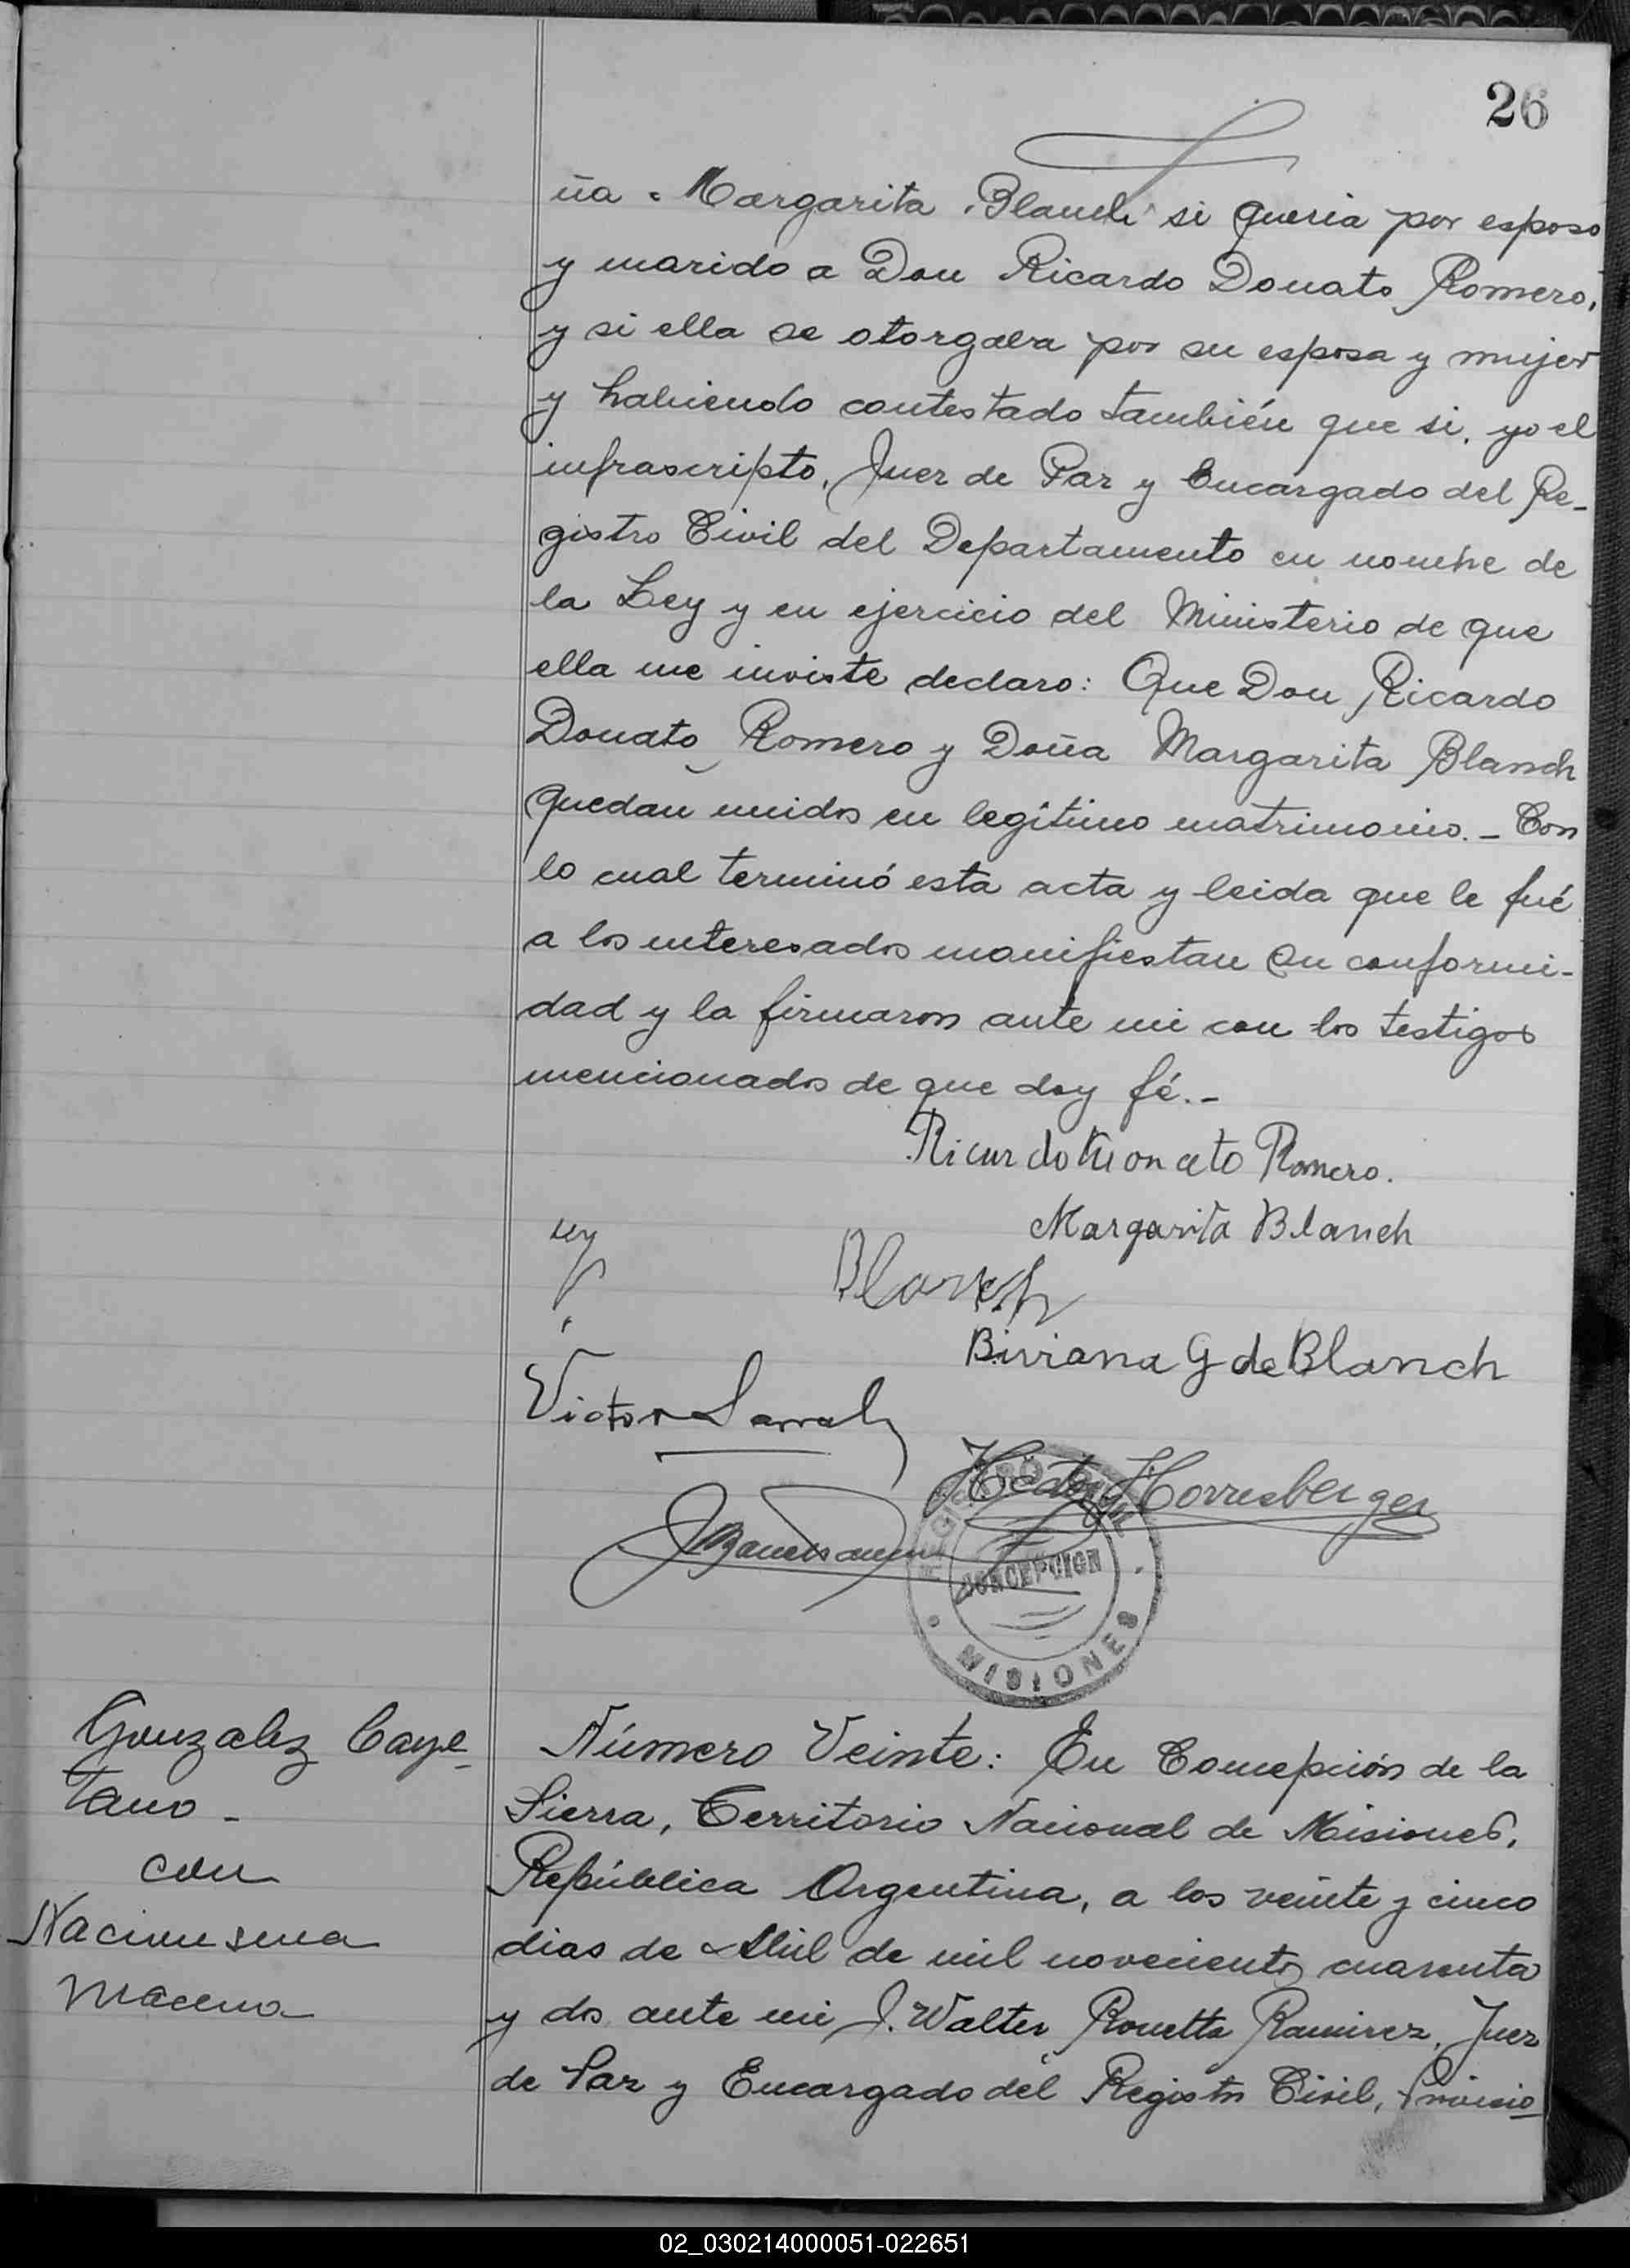 26
ña Margarita Blanch si queria por esposo
y marido a Don Ricardo Donato Romero,
y si ella se otorgaba por su esposa y mujer
y habiendo contestado también que si, yo el
infrascripto, Juez de Paz y Encargado del Re-
gistro Civil del Departamento en nombre de
la Ley y en ejercicio del Ministerio de que
ella me inviste declaro: Que Don Ricardo
Donato Romero y Doña Margarita Blanch
quedan unidos en legítimo matrimonio. - Con
lo cual terminó esta acta y leida que le fué
a los interesados manifiestan su conformi-
dad y la firmaron ante mi con los testigos
mencionados de que doy fé. -
Ricardo Donato Romero.
Margarita Blanch
Blanch
Biviana G de Blanch
Victor
Hector Horresberger
REGISTRO CIVIL
CONCEPCION
MISIONES
Gonzalez Caye-
tano -
con
Maceno
Número Veinte: En Concepción de la
Sierra, Territorio Nacional de Misiones,
República Argentina, a los veinte y cinco
dias de Abril de mil novecientos cuarenta
y dos ante mi J. Walter Ronetta Ramirez, Juez
de Paz y Encargado del Registro Civil,
02_030214000051-022651